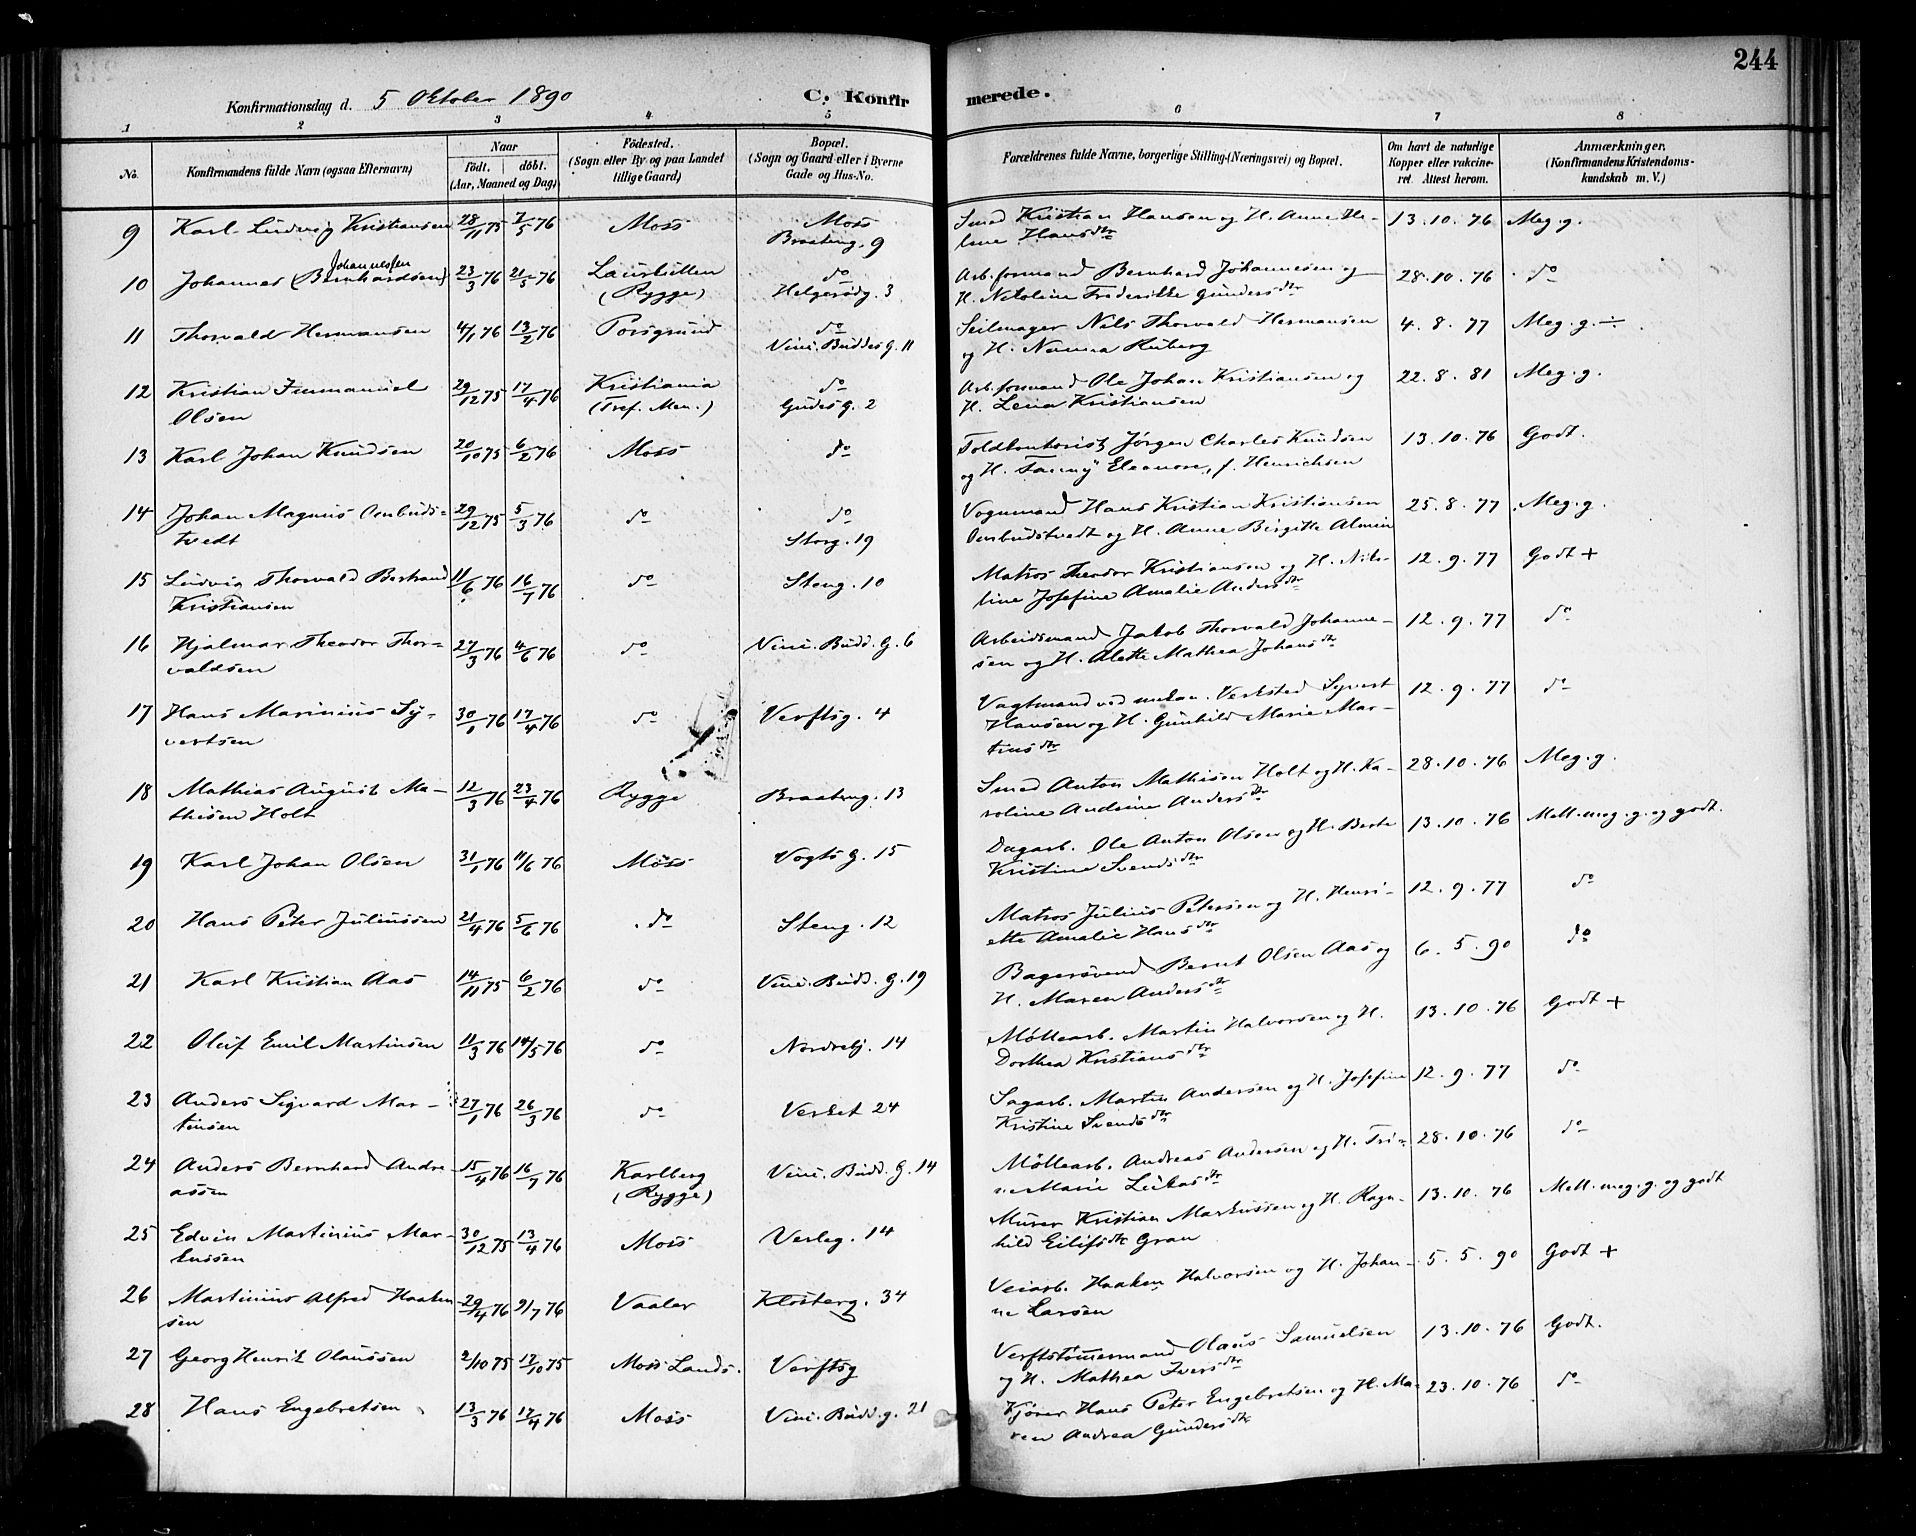 244
Konfirmationsdag d. 5 Oktober 1890 C. Konfirmerede.
1 2 3 4 5 6 7 8
No. Konfirmandens fulde Navn (ogsaa Efternavn) Naar Födt. döbt. (Aar, Maaned og Dag) Födested. (Sogn eller By og paa Landet tillige Gaard) Bopæl. (Sogn og Gaard eller i Byerne Gade og Hus-No. Forældrenes fulde Navne, borgerlige Stilling (Næringsvei) og Bopæl. Om havt de naturlige Kopper eller vakcineret. Attest herom. Anmærkninger. (Konfirmandens Kristendomskundskab m. V.)
9 Karl Ludvig Kristiansen 28/11 75 7/5 76 Moss Moss Smed Kristian Hansen og H. Anne He- 13.10.76 Meg. g.
Braateng. 9 line Hansdtr
10 Johannes (Bernhardsen) Johannessen 23/3 76 21/5 76 Laurbullen do Arb.formand Bernhard Johannesen og 28.10.76 do
(Rygge) Helgerödg. 3 H. Nikoline Frederikke Gundersdtr
11 Thorvald Hermansen 4/1 76 13/2 76 Porsgrund do Seilmager Nils Thorvald Hermansen 4.8.77 Meg. g. ÷
Vinc. Buddes G. 11 og H. Huberg
12 Kristian Immanuel 29/12 75 17/4 76 Kristiania do Arb.formand Ole Johan Kristiansen og 22.8.81 Meg. g.
Olsen (Tref. Men.) Gudes G. 2 H. Lena Kristiansen
13 Karl Johan Knudsen 20/10 75 6/2 76 Moss do Toldkontorist Jørgen Charles Knudsen 13.10.76 Godt.
og H. Fanny Eleonore, f. Henrichsen
14 Johan Magnus Ombuds- 29/12 75 5/3 76 do do Vognmand Hans Kristian Kristiansen 25.8.77 Meg. g.
tvedt Storg. 19 Ombudstvedt og H. Anne Birgitte Almin
15 Ludvig Thorvald Bertrand 11/6 76 16/7 76 do Steng. 10 Matros Theodor Kristiansen og H. Niko- 12.9.77 Godt +
Kristiansen line Josefine Amalie Andersdtr
16 Hjalmar Theodor Thor- 27/3 76 4/6 76 do Vinc. Budd. G. 6 Arbeidsmand Jakob Thorvald Johanne- 12.9.77 do
valdsen sen og H. Alette Mathea Johansdtr
17 Hans Marinius Sy- 30/1 76 17/4 76 do Verftsg. 4 Vagtmand ved mekan. Verksted Syvert 12.9.77 do
vertsen Hansen og H. Gunhild Marie Mar-
tinsdtr
18 Mathias August Ma- 12/3 76 23/4 76 Rygge Braateng. 13 Smed Anton Mathisen Holt og H. Ka- 28.10.76 Meg. g.
thisen Holt roline Andrine Andersdtr
19 Karl Johan Olsen 31/1 76 11/6 76 Moss Vogts G. 15 Dagarb. Ole Anton Olsen og H. Berte 13.10.76 Mell. meg. g. og godt.
Kristine Svendsdtr
20 Hans Peter Juliussen 21/4 76 5/6 76 do Steng. 12 Matros Julius Petersen og H. Henri- 12.9.77 do
ette Amalie Hansdtr
21 Karl Kristian Aas 14/11 75 6/2 76 do Vinc. Budd. G. 19 Bagersvend Bernt Olsen Aas og 6.5.90 do
H. Maren Andersdtr
22 Oluf Emil Martinsen 11/3 76 14/5 76 do Nordrebj. 14 Møllearb. Martin Halvorsen og H. 13.10.76 Godt +
Dorthea Kristiansdtr
23 Anders Sigvard Mar- 27/1 76 26/3 76 do Verket 24 Sagarb. Martin Andersen og H. Josefine 12.9.77 do
tinsen Kristine Svendsdtr
24 Anders Bernhard Andre- 15/4 76 16/7 76 Karlberg Vinc. Budd. G. 14 Møllearb. Andreas Andersen og H. Tri- 28.10.76 do
assen (Rygge) ne Marie Lukasdtr
25 Edvin Martinius Mar- 30/12 75 13/4 76 Moss Verleg. 14 Murer Kristian Markussen og H. Ragn- 13.10.76 Mell. meg. g. og godt
kussen hild Eilifsdtr Gran
26 Martinius Alfred Haaken- 29/4 76 9/7 76 Vaaler Klosterg. 34 Veiarb. Haaken Halvorsen og H. Johan- 5.5.90 Godt +
sen ne Larsen
27 Georg Henrik Olaussen 2/10 75 17/10 75 Moss Lands. Verftsg Verftstömmermand Olaus Samuelsen 13.10.76 Godt.
og H. Mathea Iversdtr
28 Hans Engebretsen 13/3 76 17/4 76 Moss Vinc. Budd. g. 21 Kjörer Hans Peter Engebretsen og H. Ma- 23.10.76 do
ren Andrea Gundersdtr